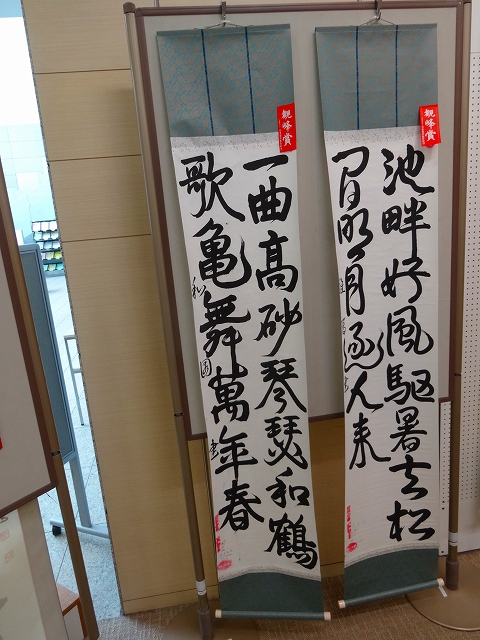 観峰賞
池畔好風駆暑去松
間明月逐人来
観峰賞
一曲高砂琴瑟和鶴
歌亀舞萬年春